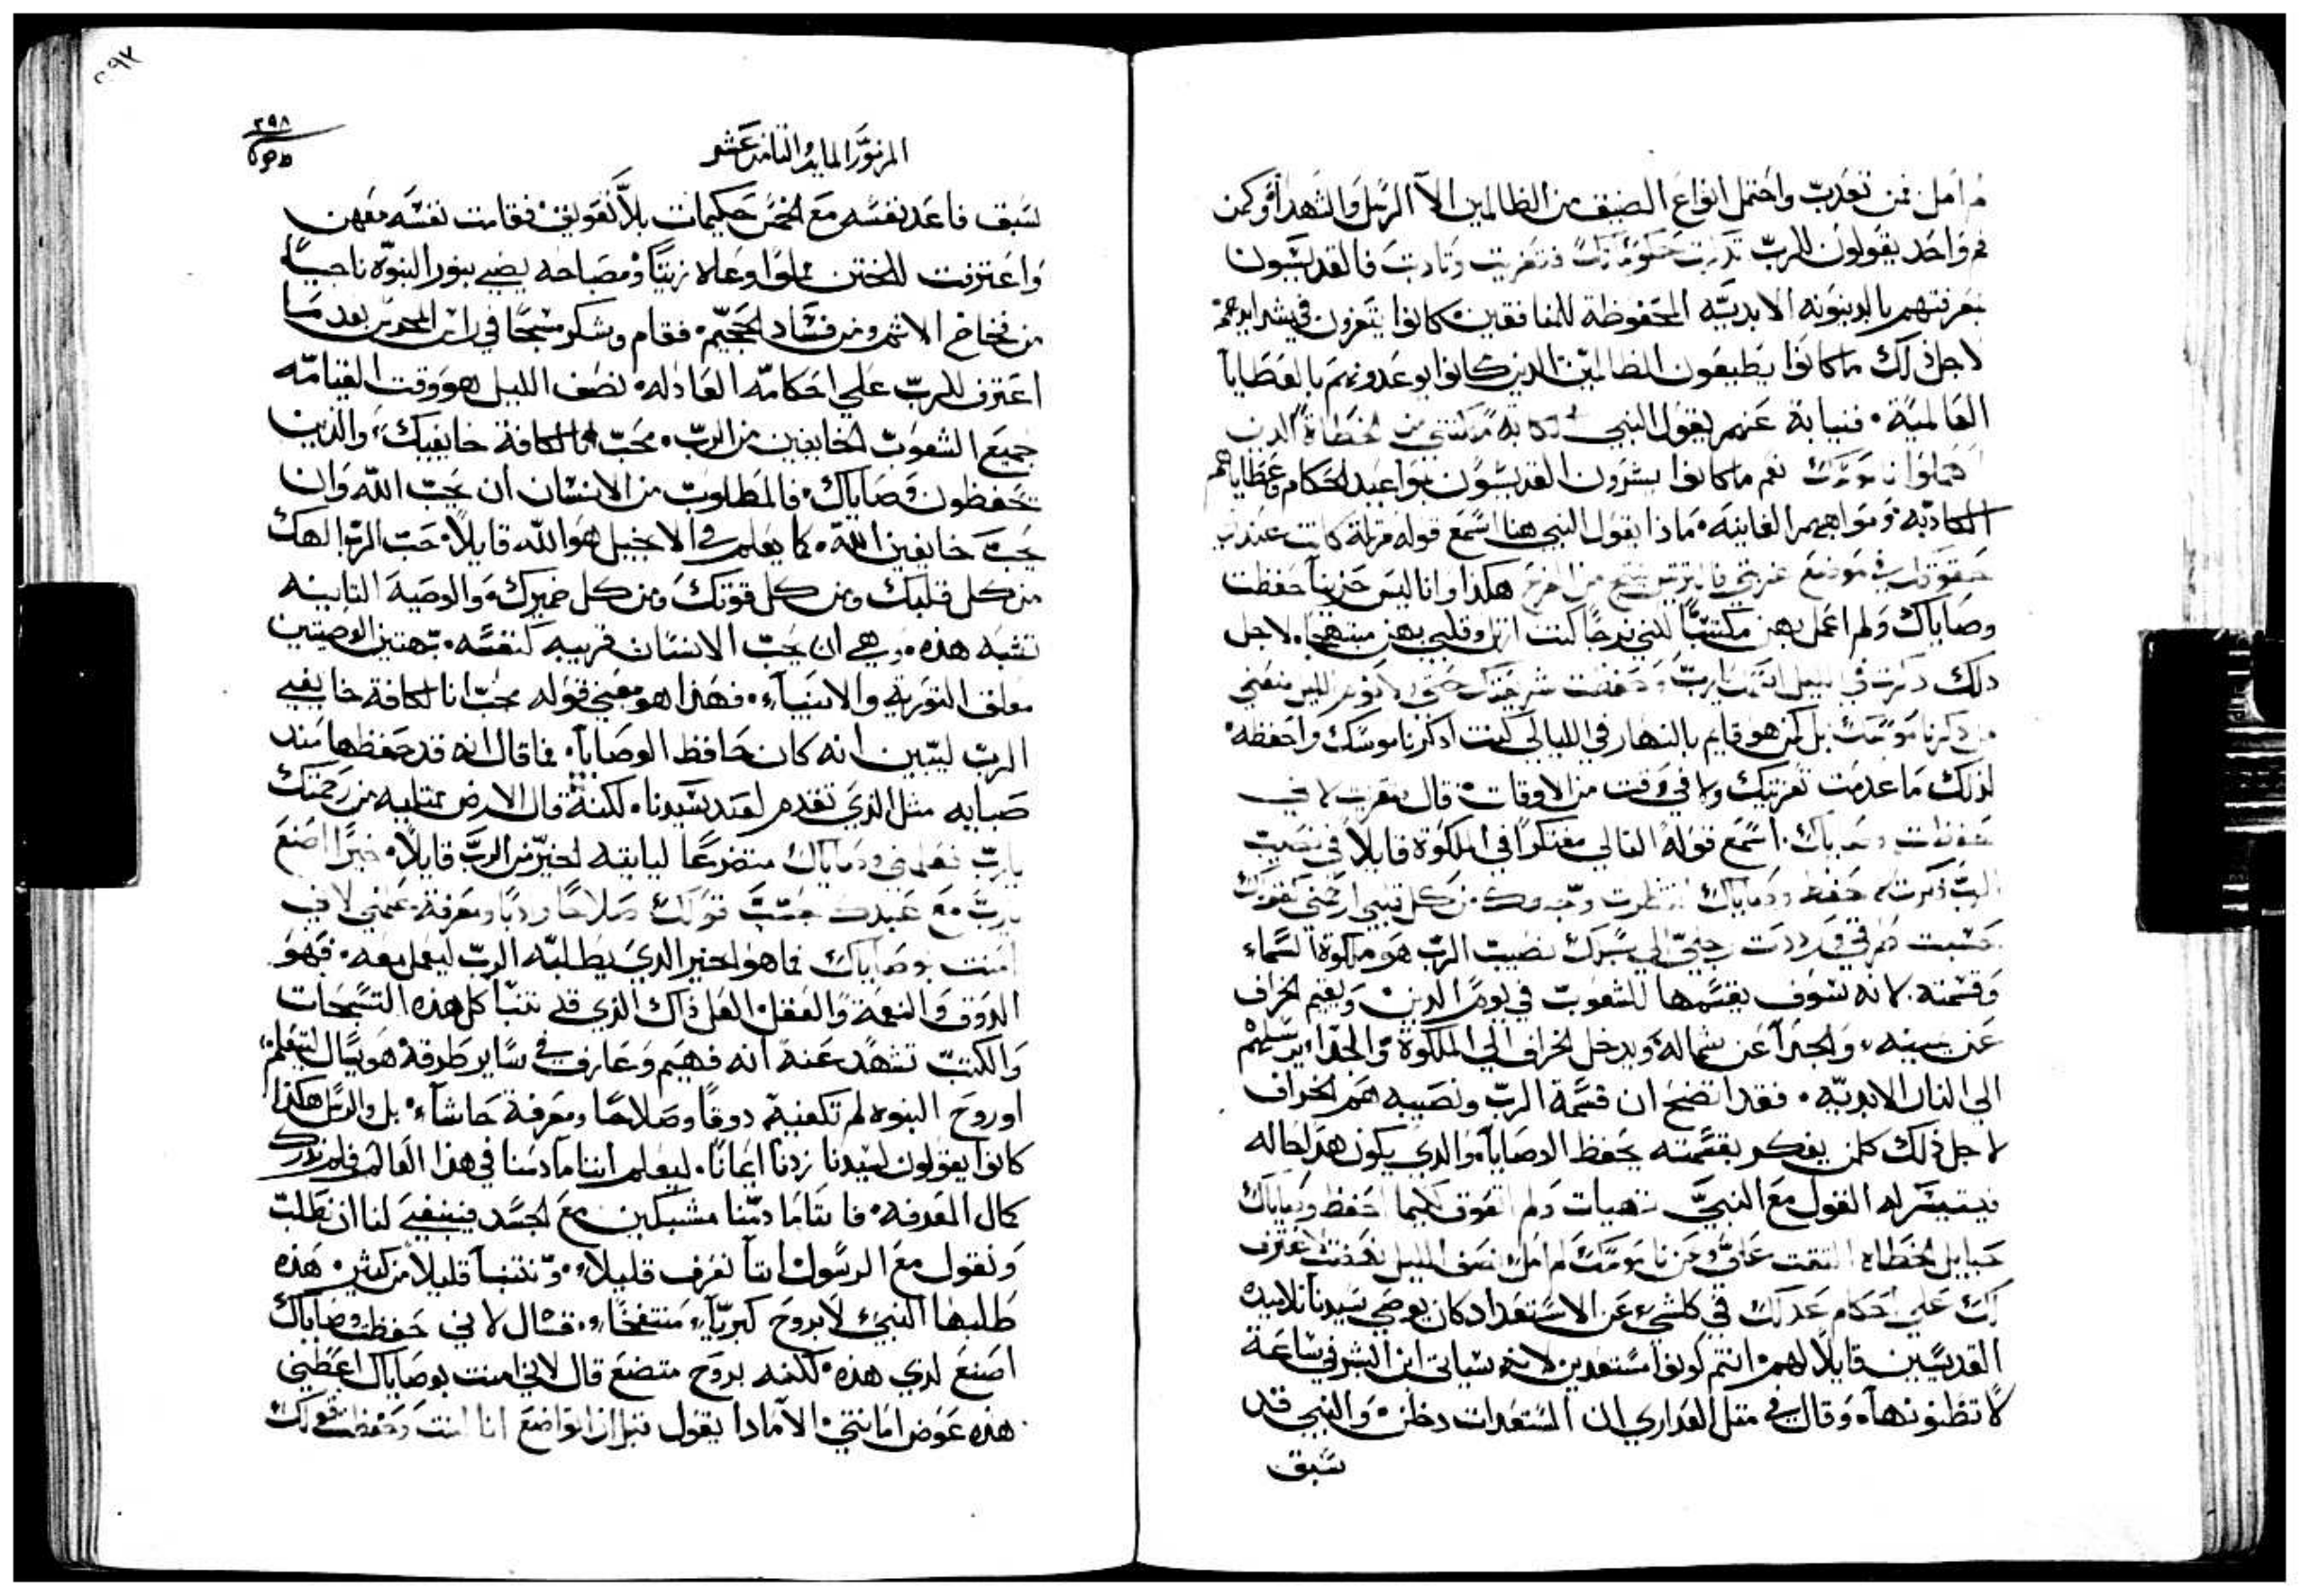 لم امل فمن تعذب واحتمل انواع الضيق من الظالمين الا الرسل والشهداء وكمن
فم واحد يقولون للرب تذكرت حكوماتك فتعزيت وتاديت فالقديسون
بمعرفتهم بالدينونه الابديه المحفوظة للمنافقين كانوا يتعزون في شدايدهم
لاجل ذلك ما كانوا يطيعون الظالمين الذين كانوا يوعدونهم بالعطايا
العالمية فنيابة عنهم يقول النبي الكابة مسكتني من الخطاة الذين
اهملوا ناموسك نعم ما كانوا يسرون القديسون بمواعيد الحكام وعطاياهم
الكاذبه ومواهبهم الفانيه ماذا يقول النبي هنا اسمع قوله مرتلة كانت عندي
حقوقك في موضع غربتي هكذا وانا ليس حزينا حفظت
وصاياك ولم اعمل بهن مكتئبا لكني فرحا كنت ارتل وقلبي بهن مبتهجا لاجل
ذلك ذكرت في الليل اسمك يارب وحفظت شريعتك حتى ولا نوم الليل منعني
من ذكر ناموسك بل كمن هو قايم بالنهار في الليالي كنت اذكر ناموسك واحفظه
لذلك ما عدمت تعزيتك ولا في وقت من الاوقات قال تعزيت لاني
حفظت وصاياك اسمع قوله التالي مفتكرا في الملكوة قايلا في نصيب
الرب ذكرت احفظ وصاياك انتظرت وجهك من كل قلبي ارحمني كقولك
حسبت طرقي ورددت رجلي الى سبلك نصيب الرب هو ملكوة السماء
وقسمته لانه سوف يقسمها للشعوب في يوم الدين ويقيم الخراف
عن يمينه والجدا عن شماله ويدخل الخراف الى الملكوة والجدا يرسلهم
الى النار الابديه فقد اتضح ان قسمة الرب ونصيبه هم الخراف
لاجل ذلك كلمن يفكر بقسمته يحفظ الوصايا والذي يكون هذا حاله
فيتيسر له القول مع النبي تهيات ولم اقلق لكيما احفظ وصاياك
حبايل الخطاه التفت علي وعن ناموسك لم امل نصف الليل نهضت لاعترف
لك على احكام عدلك في كلشي عن الاستعداد كان يوصي سيدنا تلاميذه
القديسين قايلا لهم انتم كونوا مستعدين لانه سياتي ابن البشر في ساعة
لا تظنونها وقال في مثل العذاري ان المستعدات دخلن والنبي قد
سبق
٢٩٨
المزمور المايه والثامن عشر
سبق فاعد نفسه مع الخمس حكيمات بلا تعويق فقامت نفسه معهن
واعترفت للختن مملوا وعاه زيتا ومصباحه يضي بنور النبوة ناجيا
من فخاخ الاثم ومن فساد الجحيم فقام وشكر مسبحا في راس المحرس بعد ما
اعترف للرب على احكامه العادله نصف الليل هو وقت القيامه
جميع الشعوب الخايفين من الرب محب انا لكافة خايفيك والذين
يحفظون وصاياك فالمطلوب من الانسان ان يحب الله وان
يحب خايفين الله كما يعلم في الانجيل هو الله قايلا حب الرب الهك
من كل قلبك ومن كل قوتك ومن كل ضميرك والوصية الثانيه
تشبه هذه وهي ان يحب الانسان قريبه كنفسه بهتين الوصيتين
معلق التورية والانبياء فهذا هو معنى قوله محب انا لكافة خايفي
الرب ليبين انه كان حافظ الوصايا فما قال انه قد حفظها منذ
صبايه مثل الذي تقدم لعند سيدنا لكنه قال الارض ممتليه من رحمتك
يارب فعلمني وصاياك متضرعا ليابقيه لخير من الرب قايلا خيرا اصنع
يارب مع عبدك حسب قولك صلاحا وادبا ومعرفة علمني لاني
امنت بوصاياك فما هو الخير الذي يطلبه الرب ليعمل معه فهو
الذوق والنعمة والعقل العل ذاك الذي قد تنبا كل هذه التسبحات
والكتب تشهد عنه انه فهيم وعارف في ساير طرقه هو يسال ليتعلم
اوروح النبوه لم تكفيه دوقا وصلاحا ومعرفة حاشاء بل والرسل هكذا
كانوا يقولون لسيدنا زدنا ايمانا ليعلم اننا ما دمنا في هذا العالم فلم ندرك
كمال المعرفه فاننا ما دمنا مشبكين مع الجسد فينبغي لنا ان نطلب
ونقول مع الرسول اننا نعرف قليلا ونتنبا قليلا من كثير هذه
طلبها النبي لا بروح كبرياء منتفخا قال لاني حفظت وصاياك
اصنع لدي هذه لكنه بروح متضع قال لاني امنت بوصاياك اعطيني
هذه عوض امانتي الا ماذا يقول قبل ان اتواضع انا امنت وحفظت قولك